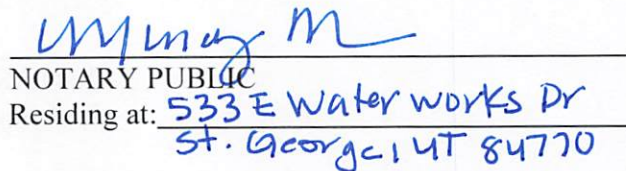 NOTARY PUBLIC
Residing at: 533 E Water works Dr
St. George, UT 84770